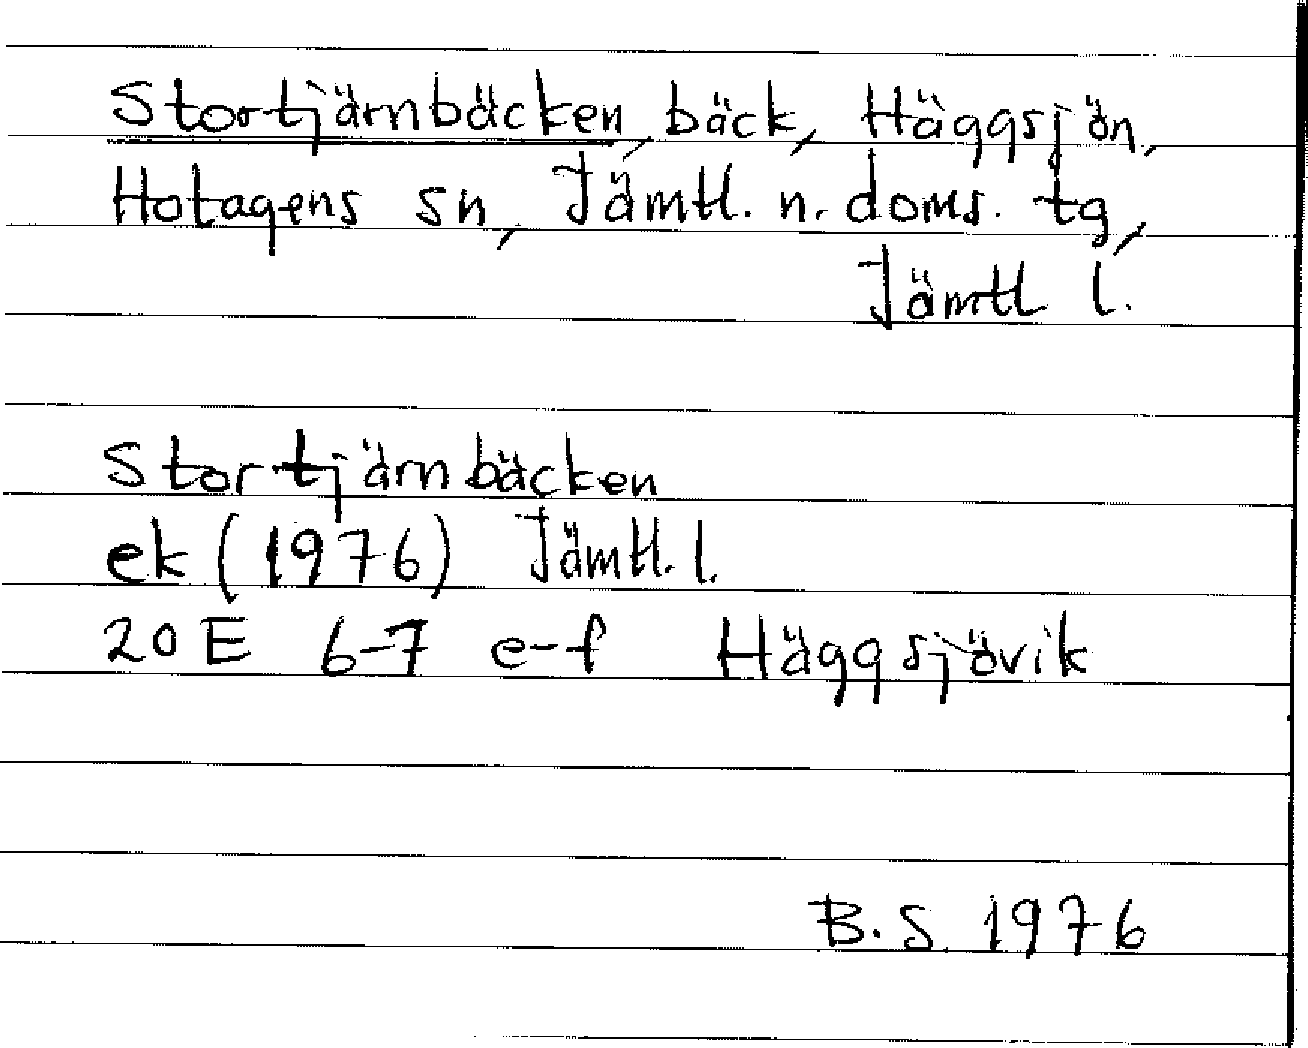 Stortjärnbäcken, bäck, Häggsjön,
Hotagens sn, Jämtl. n. doms. tg,
Jämtl l.
Stortjärnbäcken
ek (1976) Jämtl. l.
20 E 6-7 e-f Häggsjövik
B.S. 1976